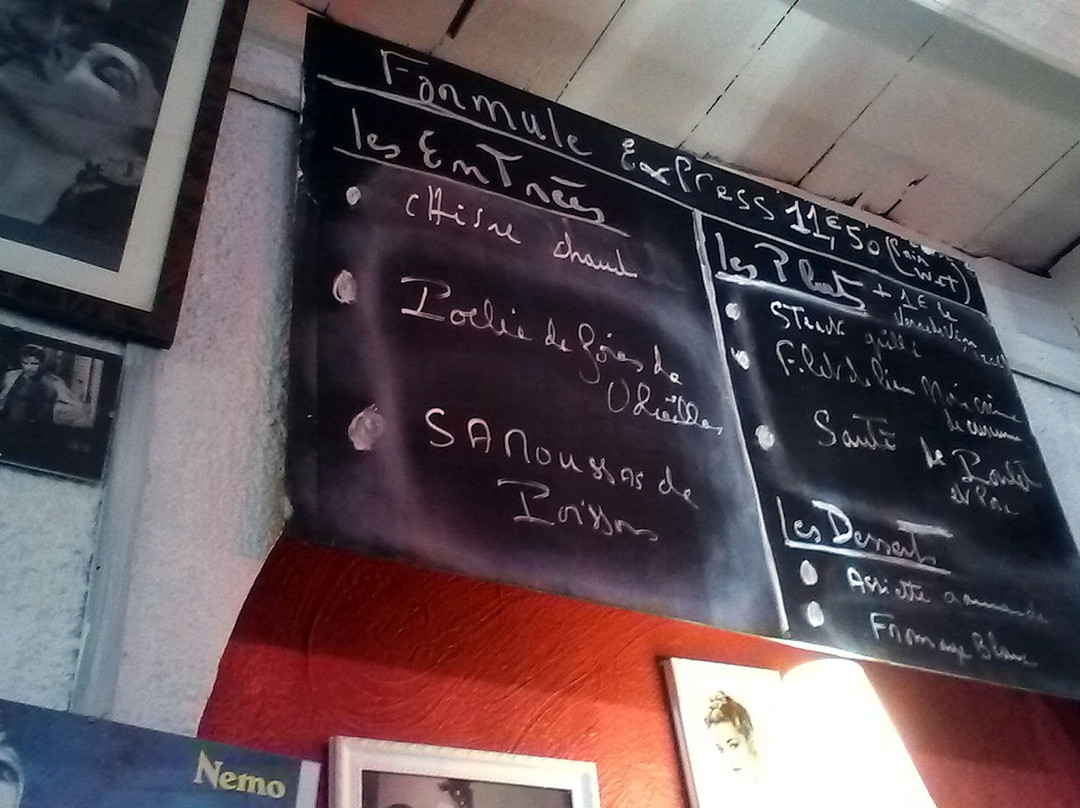 Formule Express 11€,50
les Entrées
chèvre chaud
Poêlée de foies de
Volailles
SAMOUSSAS de
Poisson
les Plats + 1€ le
Steak grillé
Filet de lieu Noir crème
de curcuma
Sauté de Poulet
et Porc
Les Desserts
Assiette gourmande
Fromage Blanc
Nemo